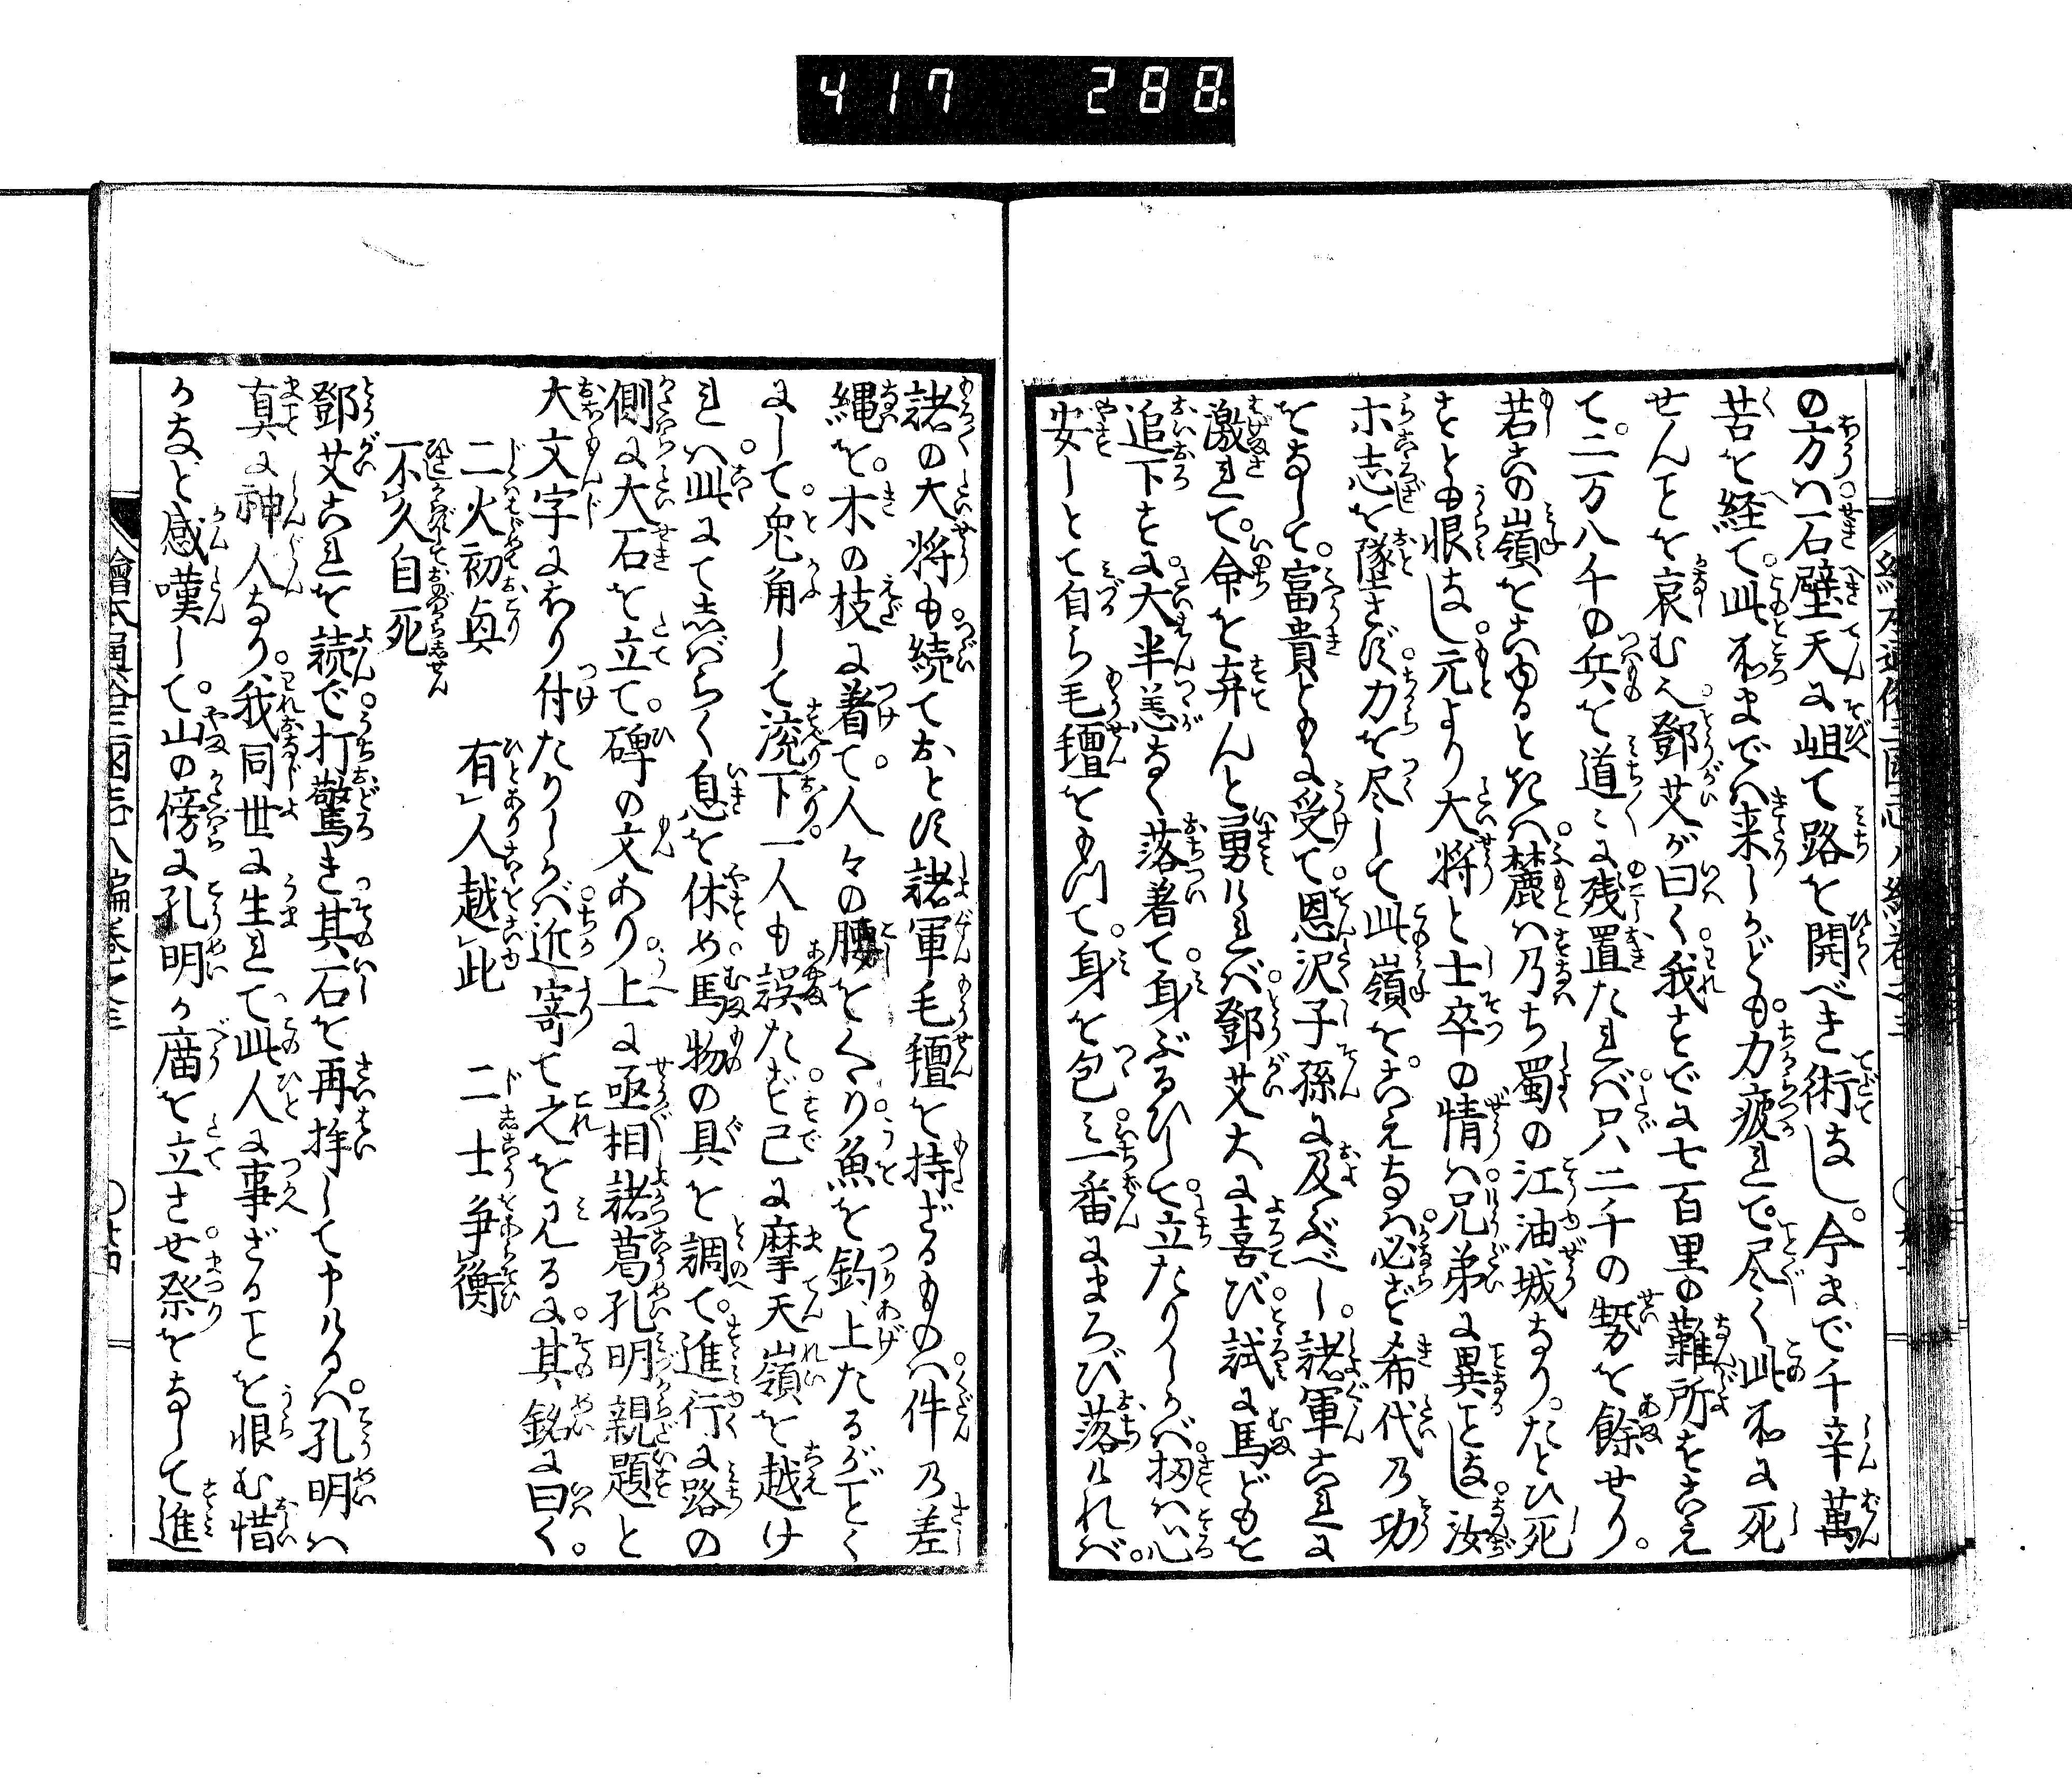 417 288
の方ハ石壁天に岨て路を開べき術なし。今まで千辛萬
苦を経て。此所までハ来しかども。力疲れて。尽く此所に死
せんことを哀むへ。鄧艾が曰く。我すでに七百里の難所をこえ
て。二万八千の兵を道〻に残置たれバ。只二千の勢を餘せり。
若この嶺をこゆるときハ。麓ハ乃ち蜀の江油城なり。たとひ死
すとも恨なし。元より大将と士卒の情ハ。兄弟に異ことなし。汝
ホ志を墜さず。力を尽して此嶺を。こえなバ。必ず希代乃功
をなして。富貴ともに受て。恩沢子孫に及ぶべし。諸軍これに
激れて。命を弃んと勇ければ。鄧艾大に喜び。試に馬どもを
追下すに。大半恙なく落着て。身ぶるひして。立たりしかバ。扨ハ心
安しとて自ら毛氈をもつて。身を包ミ。一番にまろび落けれバ。
諸の大将も。続ておとす。諸軍毛氈を持ざるものハ。件乃差
縄を。木の枝に着て。人々の腰をくゝり。魚を釣上たるがごとく
にして。兎角して流下り。一人も誤たず。已に摩天嶺を越け
れハ。此にて志ばらく息を休め。馬物の具を調て。進行に路の
側に大石を立て。碑の文あり。上に丞相諸葛孔明親題と
大文字にほり付たりしかバ。近寄て之を見るに。其銘に曰く。
二火初興 有人越此 二士争衡
不久自死
鄧艾これを読で。打驚き其石を再拝して申けるハ。孔明ハ
真に神人なり。我同世に生れて。此人に事ざることを恨む惜
かなと感嘆して。山の傍に孔明が庿を立させ。祭をなして進